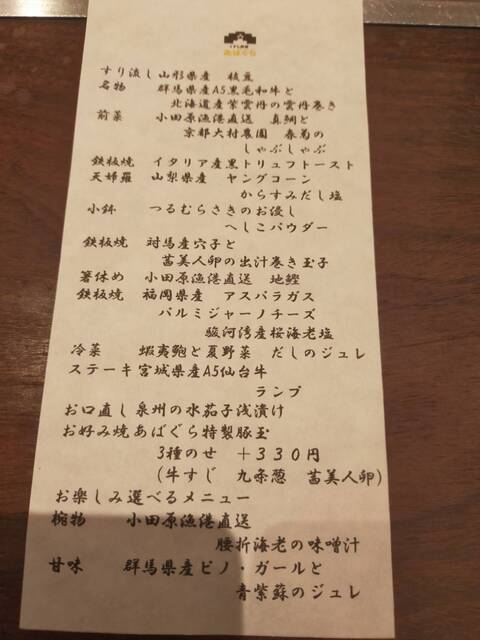 くずし鉄板
あばぐら
すり流し 山形県産 枝豆
名物 群馬県産A5黒毛和牛と
北海道産紫雲丹の雲丹巻き
前菜 小田原漁港直送 真鯛と
京都大村農園 春菊の
しゃぶしゃぶ
鉄板焼 イタリア産黒トリュフトースト
天婦羅 山梨県産 ヤングコーン
からすみだし塩
小鉢 つるむらさきのお浸し
へしこパウダー
鉄板焼 対馬産穴子と
茜美人卵の出汁巻き玉子
箸休め 小田原漁港直送 地鰹
鉄板焼 福岡県産 アスパラガス
パルミジャーノチーズ
駿河湾産桜海老塩
冷菜 蝦夷鮑と夏野菜 だしのジュレ
ステーキ 宮城県産A5仙台牛
ランプ
お口直し 泉州の水茄子浅漬け
お好み焼 あばぐら特製豚玉
3種のせ +330円
(牛すじ 九条葱 茜美人卵)
お楽しみ選べるメニュー
椀物 小田原漁港直送
腰折海老の味噌汁
甘味 群馬県産ピノ・ガールと
青紫蘇のジュレ